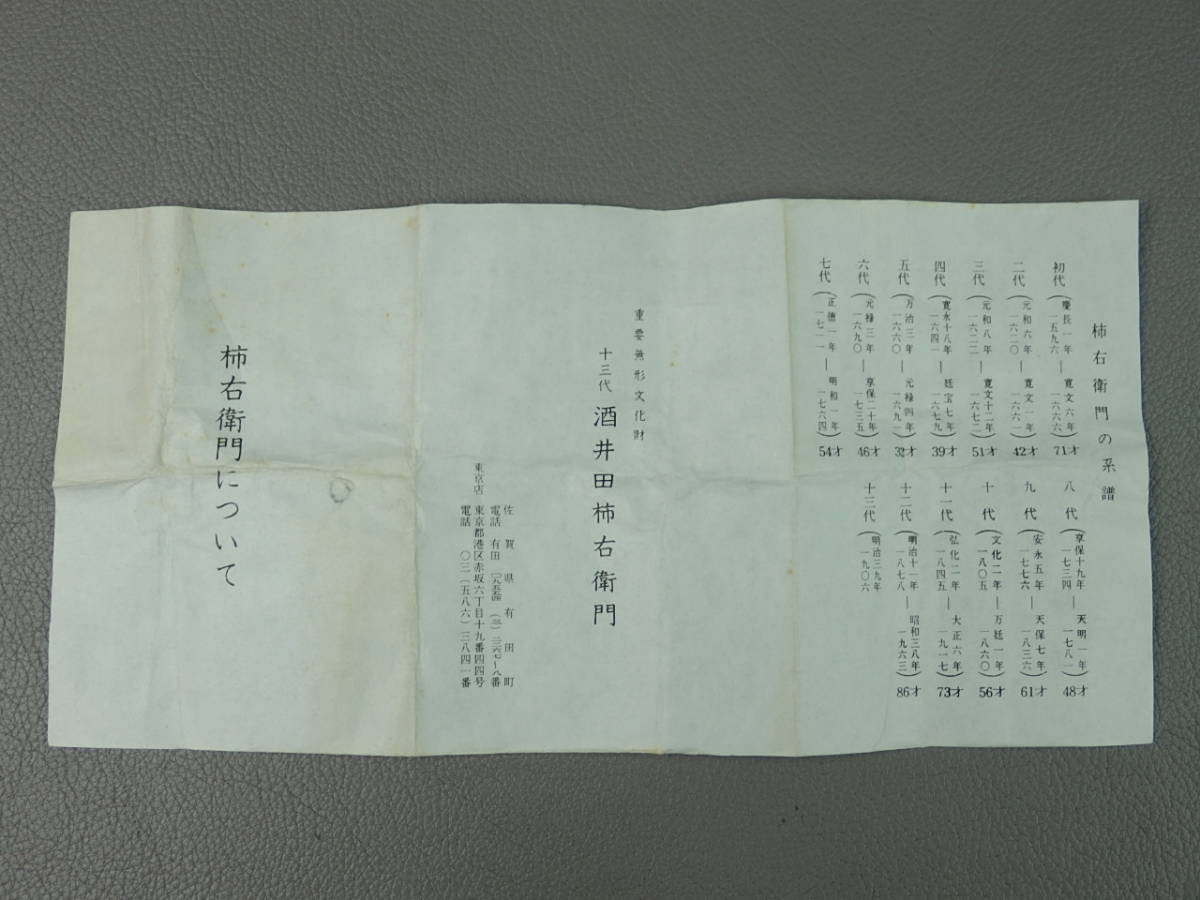 柿右衛門の系譜
初代(慶長一年 一五九六 ― 寛文六年 一六六六)71才
二代(元和六年 一六二〇 ― 寛文一年 一六六一)42才
三代(元和八年 一六二二 ― 寛文十二年 一六七二)51才
四代(寛永十八年 一六四一 ― 廷宝七年 一六七九)39才
五代(万治三年 一六六〇 ― 元禄四年 一六九一)32才
六代(元禄三年 一六九〇 ― 享保二十年 一七三五)46才
七代(正徳一年 一七一一 ― 明和一年 一七六四)54才
八代(享保十九年 一七三四 ― 天明一年 一七八一)48才
九代(安永五年 一七七六 ― 天保七年 一八三六)61才
十代(文化二年 一八〇五 ― 万廷一年 一八六〇)56才
十一代(弘化二年 一八四五 ― 大正六年 一九一七)73才
十二代(明治十一年 一八七八 ― 昭和三八年 一九六三)86才
十三代(明治三九年 一九〇六)
重要無形文化財
十三代 酒井田柿右衛門
佐賀県有田町
電話 有田
東京店 東京都港区赤坂六丁目十九番四四号
電話 〇三(五八六)三八四一番
柿右衛門について